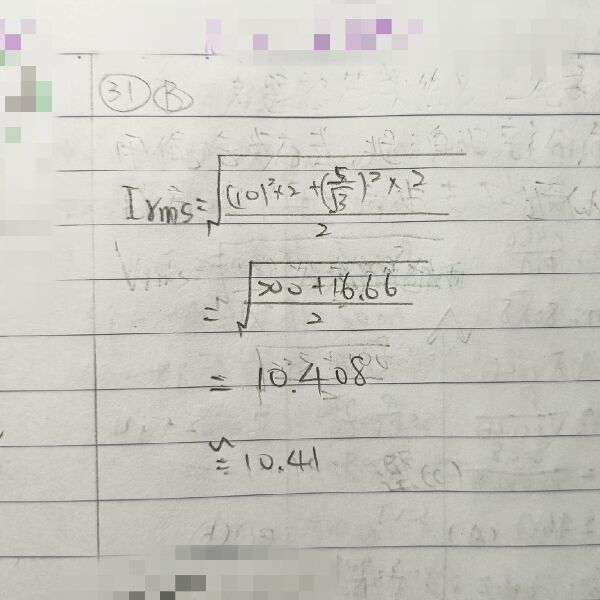 31 B
Irms = √(((10)²×2 + (5/√3)²×2)/2)
= √((200+16.66)/2)
= 10.408
≈ 10.41